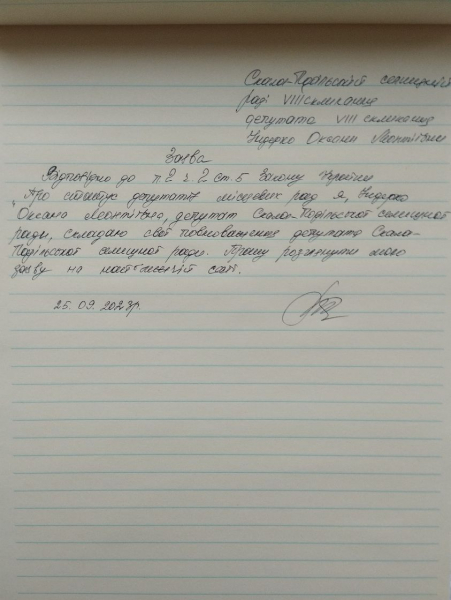 Скала-Подільській селищній
раді VIII скликання
депутата VIII скликання
Оксани Леонтіївни
Заява
Відповідно до п 2 ч. 2 ст. 5 Закону України
„Про статус депутатів місцевих рад я,
Оксана Леонтіївна, депутат Скала-Подільської селищної
ради, складаю свої повноваження депутата Скала-
Подільської селищної ради. Прошу розглянути мою
заяву на найближчій сесії.
25. 09. 2023р.